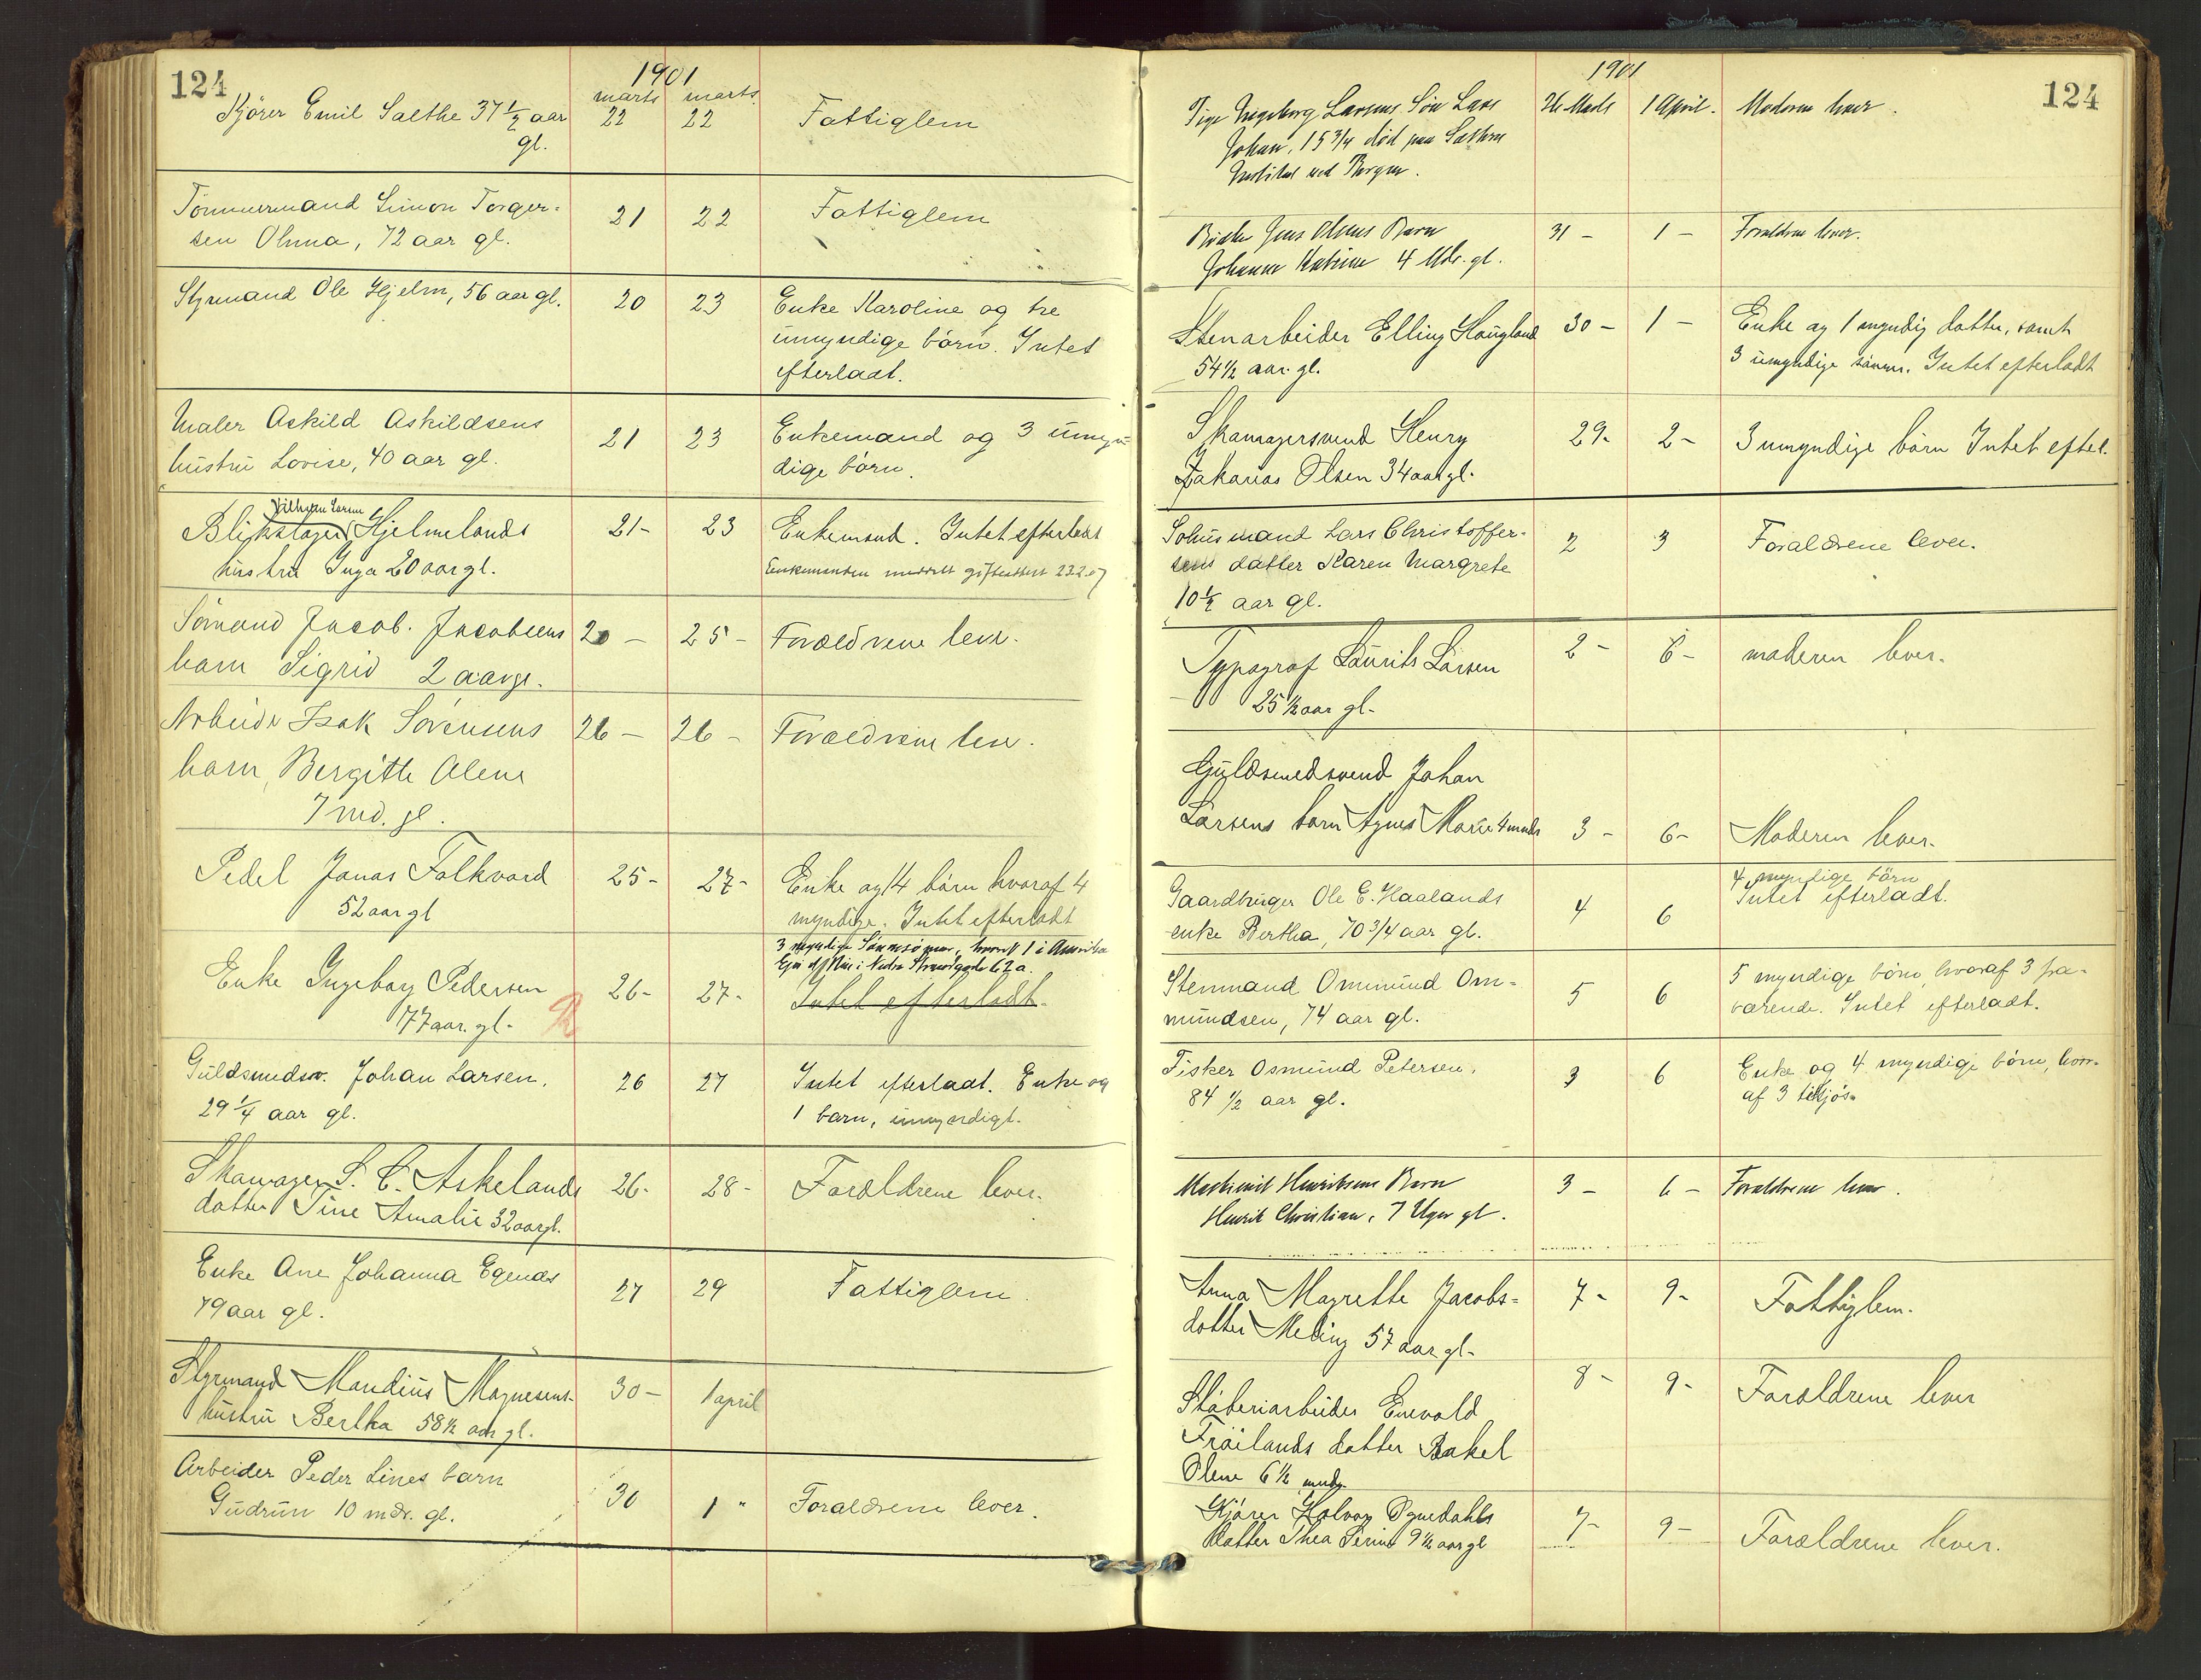 124
1901
marts marts
Kjörer Emil Salthe 37 1/2 aar 22 22 Fattiglem
gl.
Tömmermand Simon Torger-
sen Ohma, 72 aar gl. 21 22 Fattiglem
Styrmand Ole Hjelm, 56 aar gl. 20 23 Enke Karoline og tre
umyndige börn. Intet
efterladt.
Maler Askild Askildsens 21 23 Enkemand og 3 umyn-
hustru Lovise, 40 aar gl. dige börn.
Vilhelm Larsen
Blikslager Hjelmelands 21- 23 Enkemand. Intet efterladt
hustru Inga 20 aar gl. Enkemanden meddelt gifteattest 23.2.07
Sömand Jacob Jacobsens 20 - 25 - Forældrene lever.
barn Sigrid 2 aar gl.
Arbeider Isak Sörensens 26 - 26 - Forældrene lever.
barn, Bergitte Olene
7 md. gl.
Pedel Jonas Folkvord 25- 27- Enke og 14 börn hvoraf 4
52 aar gl myndige. Intet efterladt
3 myndige Sönnesönner, hvoraf 1 i Amerika
Eier af Hus i Nedre Strandgade 62a.
Enke Ingeborg Pedersen 26- 27- Intet efterladt-
77 aar. gl-
Guldsmedsv. Johan Larsen. 26 27 Intet efterladt. Enke og
29 1/4 aar gl. 1 barn, umyndigt.
Skomager S. C. Askelands 26- 28- Forældrene lever.
datter Tine Amalie 32 aar gl.
Enke Ane Johanna Egenæs 27 29 Fattiglem.
79 aar gl.
Styrmand Maudius Magnesens 30- 1 april
hustru Bertha 58 1/2 aar gl.
Arbeider Peder Lines barn
Gudrun 10 mdr. gl. 30 1 " Forældrene lever.
124
1901
Pige Ingeborg Larsens Sön Lars 26 Marts 1 April. Moderen lever.
Johan, 15 3/4 död paa
Institut ved Bergen.
Jens Olsens Barn 31 - 1 - Forældrene lever.
Johanne Katrine 4 Mdr. gl.
Stenarbeider Elling Haugland 30 - 1 - Enke og 1 myndig datter, samt
54 1/2 aar. gl. 3 umyndige sönner. Intet efterladt
Skomagersvend Henry 29- 2- 3 umyndige börn Intet efterl.
Zakarias Olsen 34 aar gl.
Sohusmand Lars Christoffer- 2 3 Forældrene lever.
sens datter Karen Margrete
10 1/2 aar gl.
Typograf Laurits Larsen 2- 6- moderen lever.
25 1/2 aar gl-
Guldsmedsvend Johan
Larsens barn Agnes Marie 4 mndr 3 - 6- Moderen lever.
Gaardbruger Ole E. Haalands 4 6 4 myndige börn
enke Bertha, 70 3/4 aar gl. Intet efterladt.
Stenmand Ommund Om- 5 6 5 myndige börn, hvoraf 3 fra-
mundsen, 74 aar gl. værende. Intet efterladt.
Fisker Osmund Petersen. 3 6 Enke og 4 myndige börn, hvor-
84 1/2 aar gl. af 3 tilsjös.
Maskinist Henriksens Barn 3 - 6 - Forældrene lever.
Henrik Christian, 7 Uger gl.
Anna Magrethe Jacobs- 7- 9- Fattiglem.
datter Meling 57 aar gl-
Stöberiarbeider Enevald 8- 9- Forældrene lever
Fröilands datter Rakel
Olene 6 1/2 mndr
Kjörer Halvor Ognedahls 7- 9- Forældrene lever.
datter Thea Serine 9 1/2 aar gl